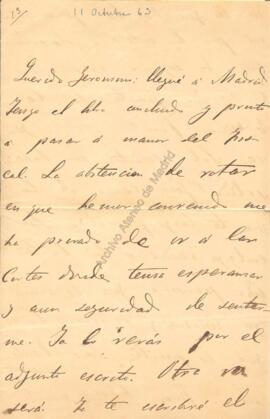 13/
11 Octubre 63
Querido Jeronimo: llegué á Madrid
Tengo el libro concluido y pronto
á pasar á manos del Fis-
cal. La abstencion de votar
en que hemos convenido me
ha privado de ir á las
Cortes donde tenia esperanzas
y aun seguridad de sentar-
me. Ya lo verás por el
adjunto escrito. Otra vez
será. Yo te escribiré el
Archivo Ateneo de Madrid